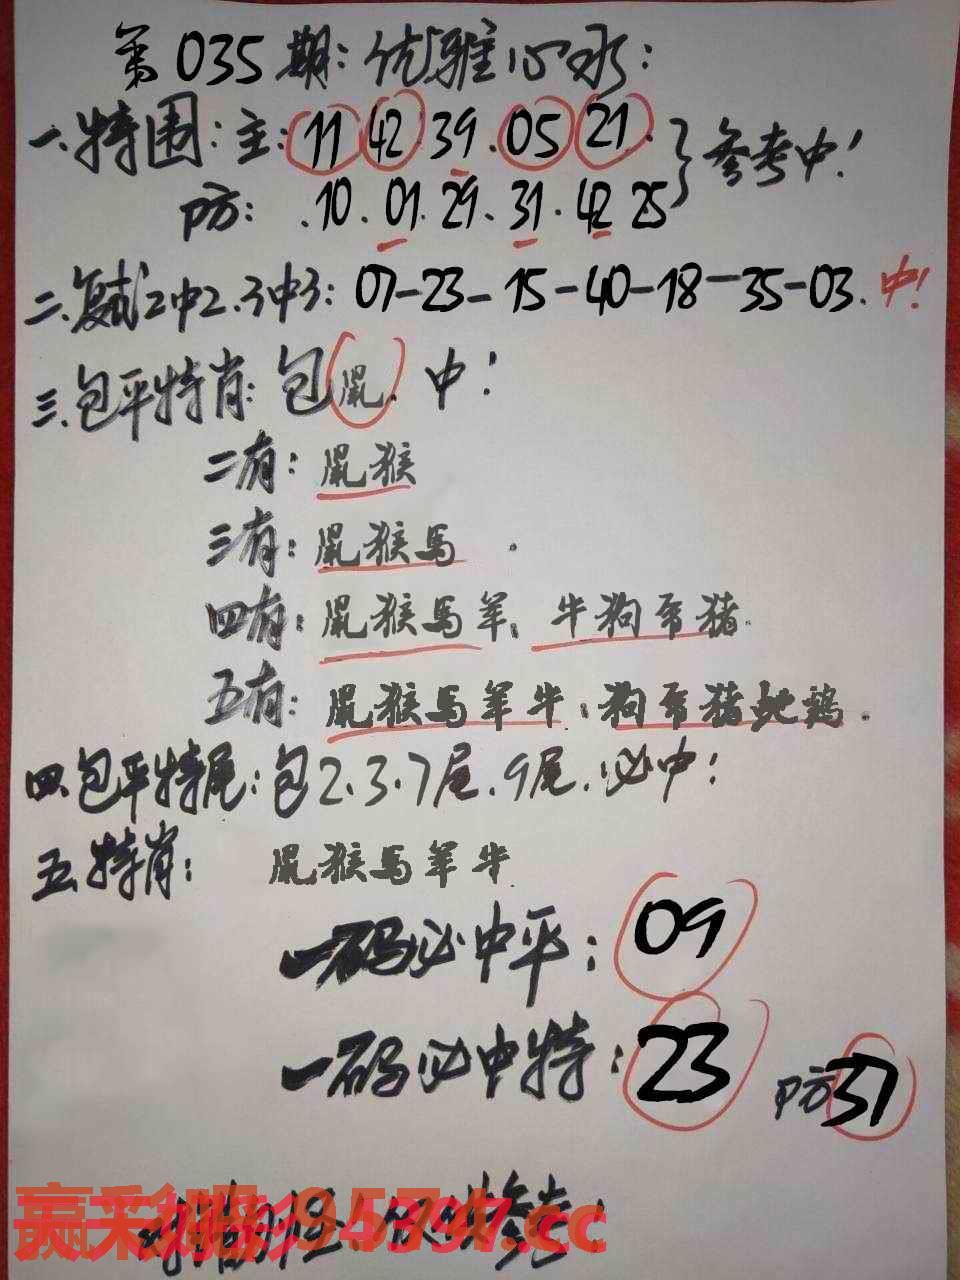 第035期:优雅心水:
一.特围:主:11 42.39.05 21. 参考中!
防:.10.01.29.31.42 25
二.复式2中2.3中3:07-23-15-40-18-35-03.中!
三.包平特肖:包鼠.中!
二有:鼠猴
三有:鼠猴马.
四有:鼠猴马羊,牛狗兔猪.
五有:鼠猴马羊牛,狗兔猪蛇鸡.
四.包平特尾:包2.3.7尾.9尾.必中!
五.特肖:鼠猴马羊牛.
一码必中平:09
一码必中特:23 防37
仅供参考